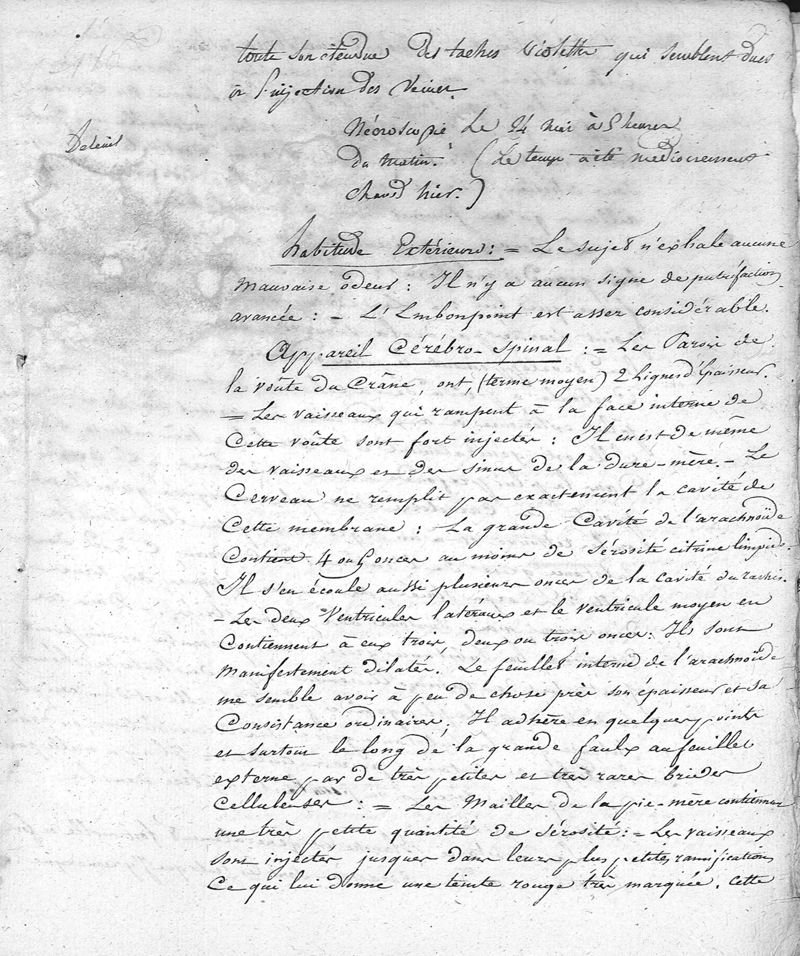 toute son étendue des taches violettes qui semblent dues
à l'injection des veines.
Nécroscopie Le 24 Mai à 5 heures
du matin. (Le temps a été médiocrement
chaud hier.)
habitude Extérieure : = Le sujet n'exhale aucune
mauvaise odeur : Il n'y a aucun signe de putréfaction
avancée : - L'Embonpoint est assez considérable.
Appareil Cérébro-Spinal : = Les Parois de
la voûte du Crâne, ont, (terme moyen) 2 lignes d'Épaisseur.
= Les vaisseaux qui rampent à la face interne de
Cette voûte sont fort injectés : Il en est de même
des vaisseaux et des sinus de la dure-mère. - Le
Cerveau ne remplit pas exactement la cavité de
Cette membrane : La grande Cavité de l'arachnoïde
Contient 4 ou 5 onces au moins de sérosité citrine limpide.
Il s'en écoule aussi plusieurs onces de la cavité du rachis.
- Les deux Ventricules latéraux et le ventricule moyen en
Contiennent à eux trois, deux ou trois onces : Ils sont
manifestement dilatés. Le feuillet interne de l'arachnoïde
me semble avoir à peu de chose près son épaisseur et sa
Consistance ordinaires. Il adhère en quelques points
et surtout le long de la grande faulx au feuillet
externe par de très petites et très rares brides
Celluleuses : = Les Mailles de la pie-mère contiennent
une très petite quantité de sérosité : = Les vaisseaux
sont injectés jusques dans leurs plus petites ramifications
Ce qui lui donne une teinte rouge très marquée. Cette